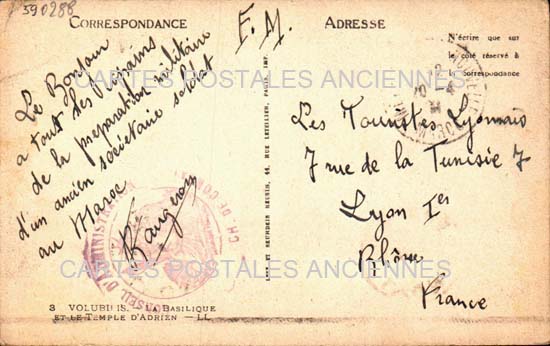 590288
CORRESPONDANCE
F.M.
ADRESSE
N'écrire que sur
le côté réservé à
la correspondance
Le Bonjour
a tout des Copains
de la preparation militaire
d'un ancien sociétaire soldat
au Maroc
Les Touristes Lyonnais
7 rue de la Tunisie 7
Lyon Ier
Rhône
France
CONSEIL D'ADMINISTRATION
CARTES POSTALES ANCIENNES
CARTES POSTALES ANCIENNES
LEVY ET NEURDEIN RÉUNIS, 44, RUE LETELLIER, PARIS, IMP.
3 VOLUBILIS. — LA BASILIQUE
ET LE TEMPLE D'ADRIEN. — LL